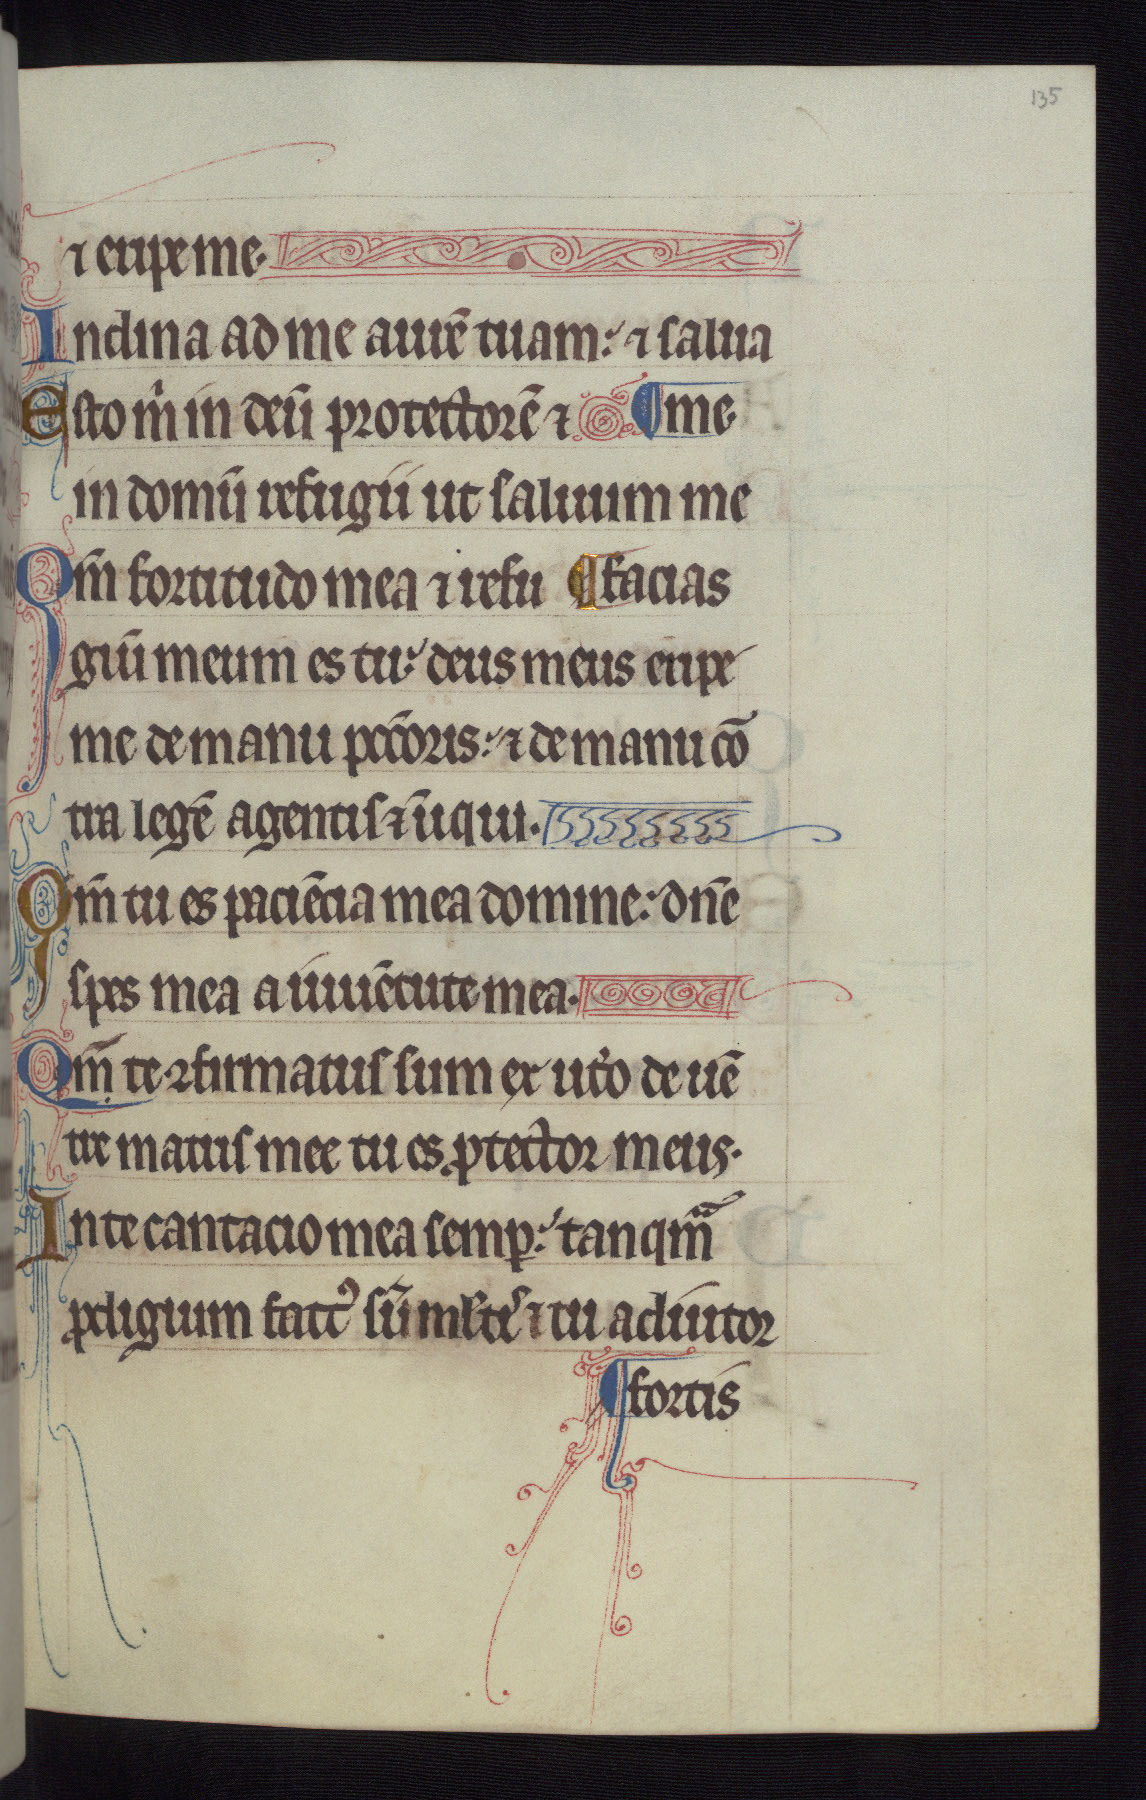 135
⁊ eripe me.
Inclina ad me aurē tuam: ⁊ salua
Esto m̄ in deū protectorē ⁊ ¶ me.
in domū refugii ut saluum me
Qm̄ fortitudo mea ⁊ refu ¶ facias
giū meum es tu: deus meus eripe
me de manu pctōris: ⁊ de manu cō
tra legē agentis ⁊ īiqui.
Qm̄ tu es paciēcia mea domine: dn̄e
spes mea a iuuētute mea.
Qm̄ te ꝯfirmatus sum ex utͦo de uē
tre matris mee tu es ꝓtector meus.
In te cantacio mea semꝑ: tanqm̄
ꝓdigium factꝰ sū mltis ⁊ tu adiutor
¶ fortis